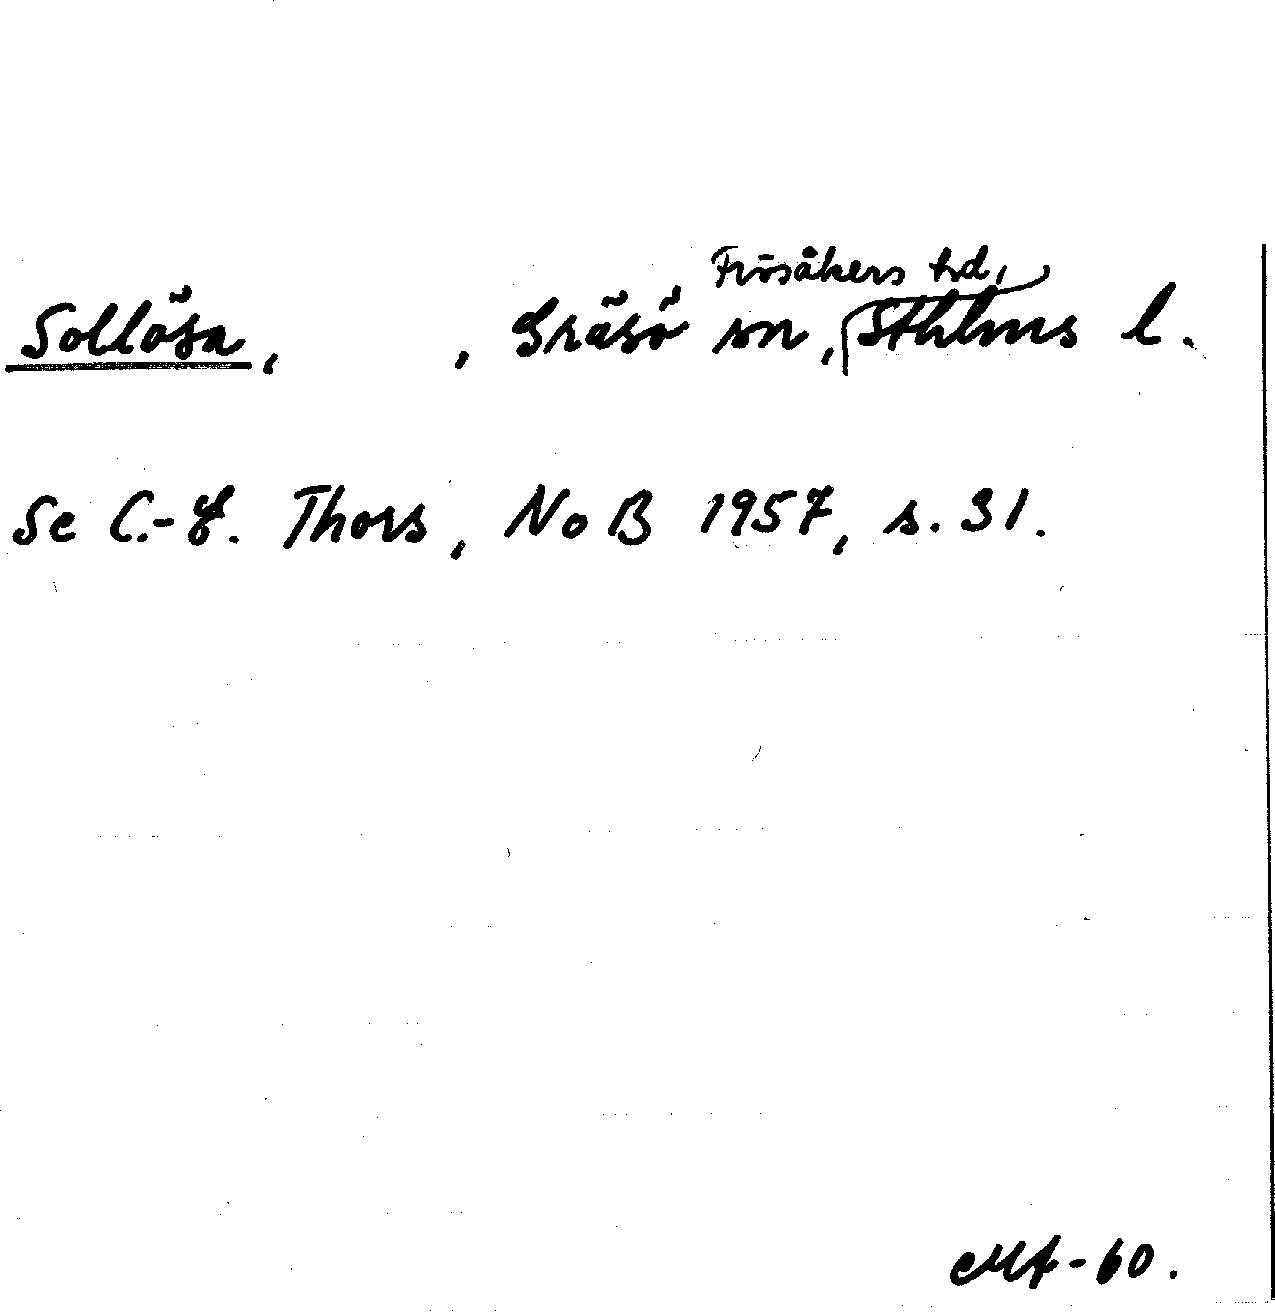 Sollösa, , Gräsö sn, Frösåkers hd, Sthlms l.
Se C.-E. Thors, NoB 1957, s. 31.